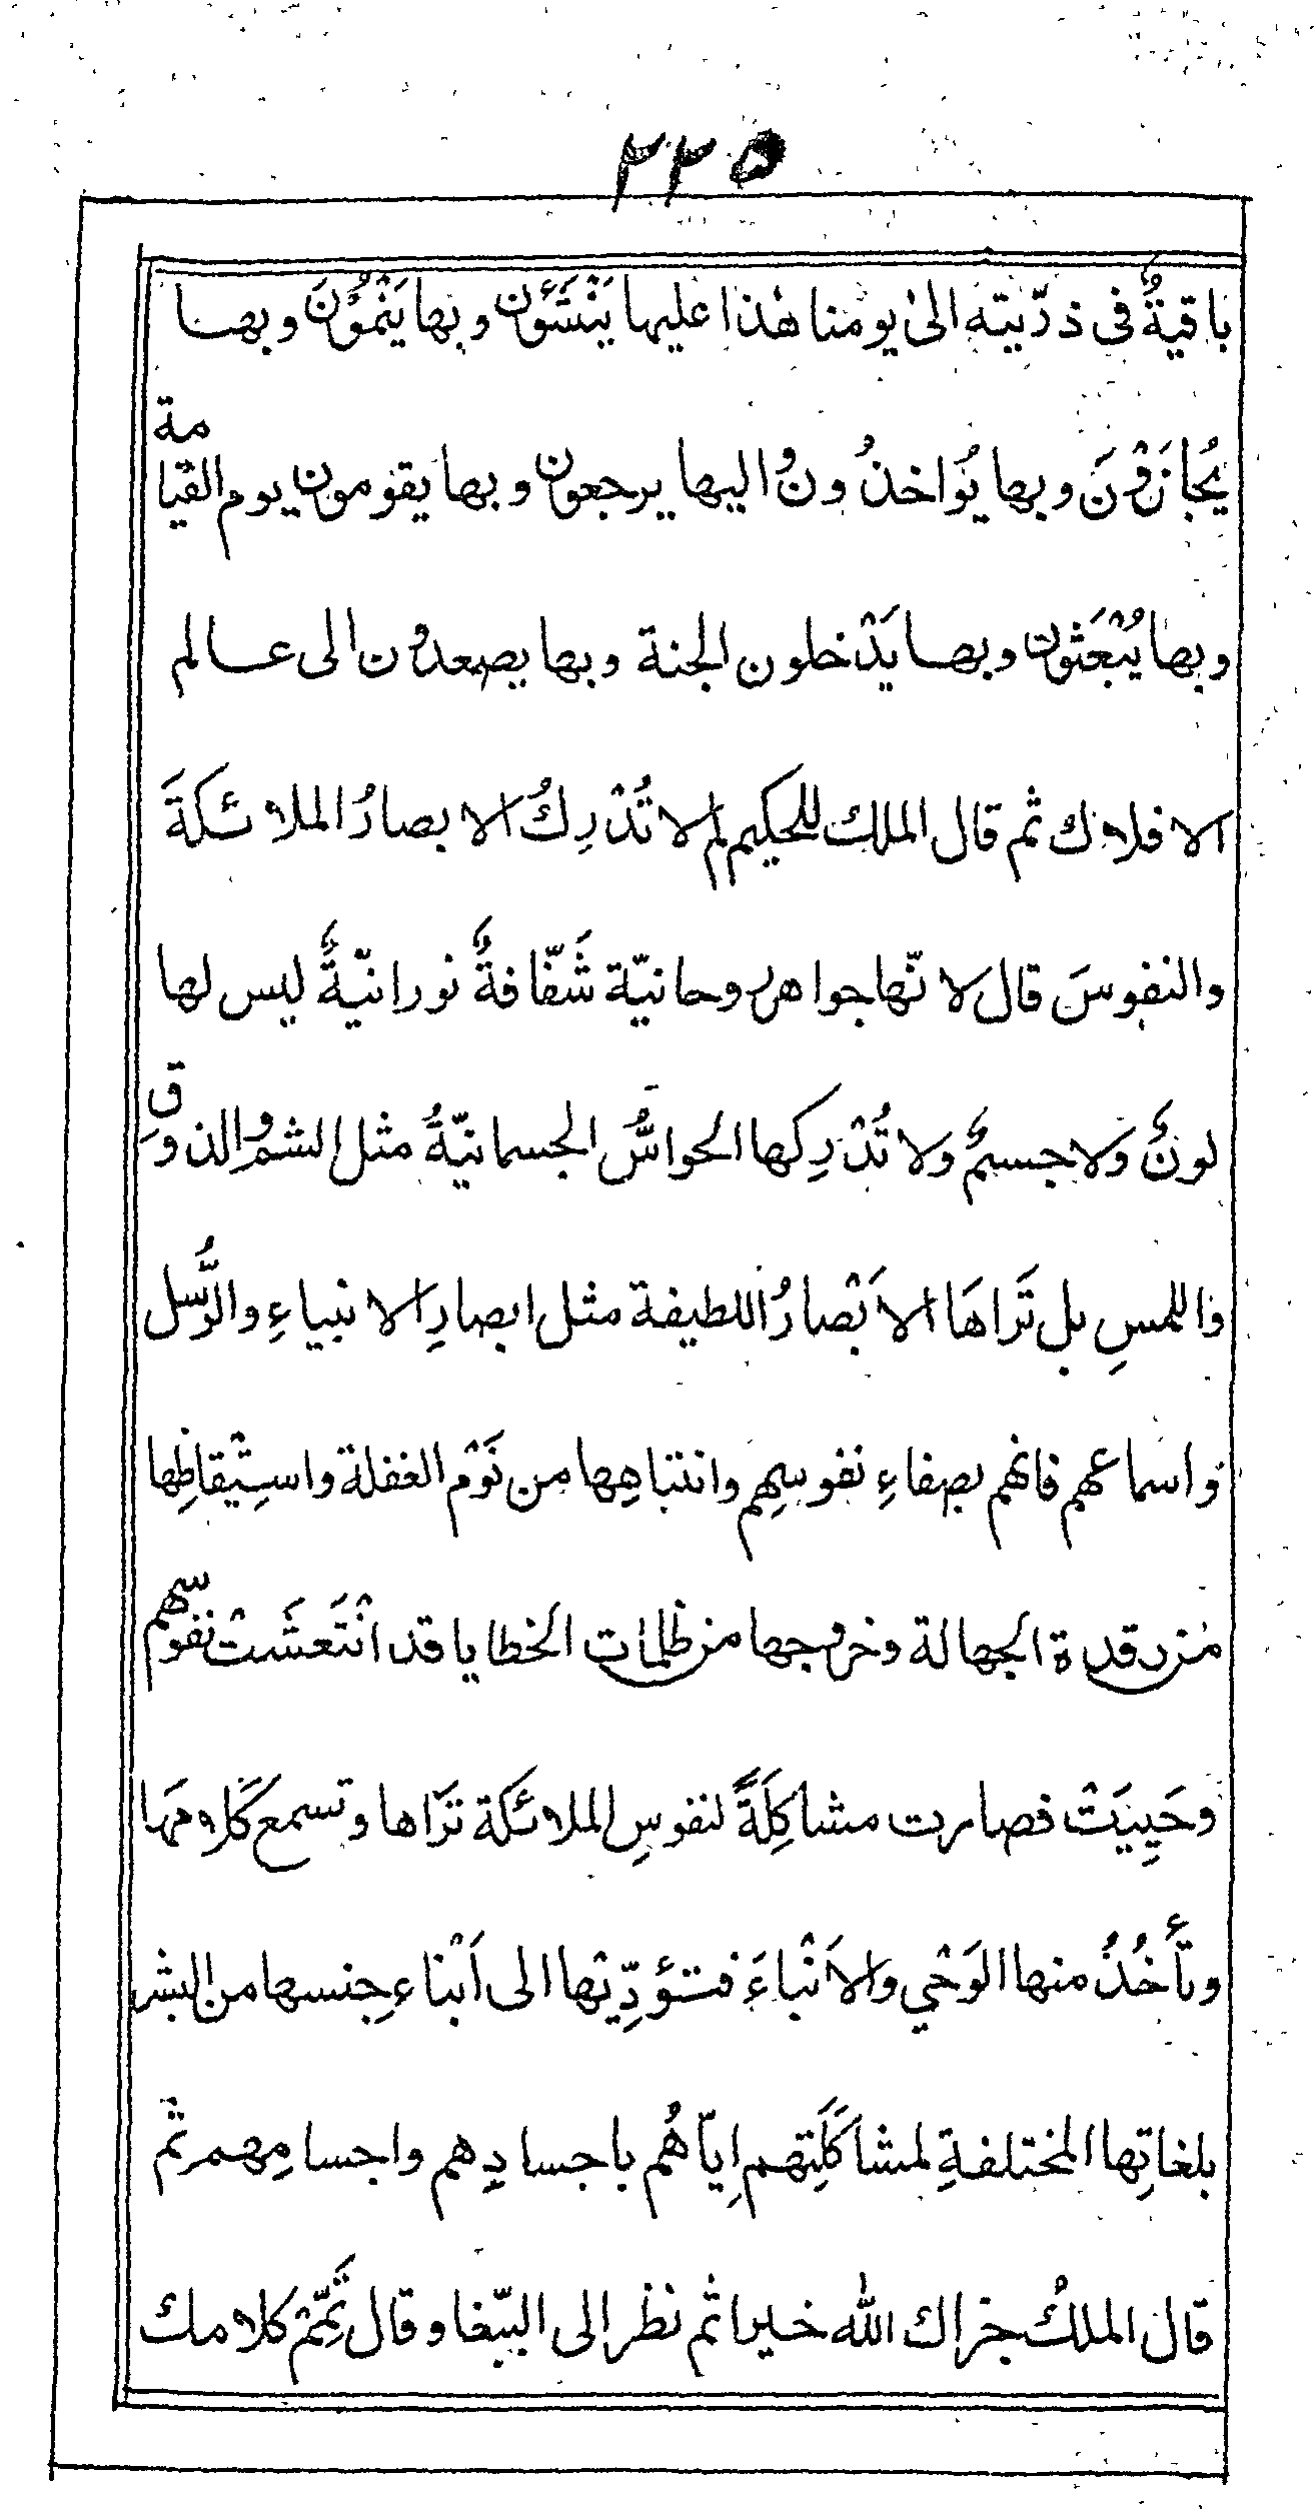 ٣٣٥
باقيةٌ فى ذرّيته الىٰ يومنا هٰذا عليها يَنْشَئُون وبها يَنْمُوْنَ وبها
يُجَازَوْنَ وبها يُوَاخذُونُ اليها يرجعون وبها يقومون يوم القيامة
وبها يُبْعَثون وبها يَدْخلون الجنة وبها يصعدون الى عالم
الافلاك ثم قال الملك للحكيم لم لا تُدْرِكُ الابصارُ الملائكةَ
والنفوسَ قال لانّها جواهر روحانيّة شَفّافةٌ نورانيّةٌ ليس لها
لونٌ ولا جسمٌ ولا تُدْرِكها الحواسُّ الجسمانيّةُ مثل الشمُ والذوقِ
واللمسِ بل تَرَاهَا الاَبْصارُ اللطيفة مثل ابصارِ الانبياءِ والرُّسل
واسماعهم فانهم بصفاءِ نفوسِهم وانتباهِها من نَوْم الغفلة واسِتْيقاظِها
من رقدة الجهالة وخروجها من ظلمات الخطايا قد انْتَعشَتْ نفوسهم
وحَيِيَتْ فصارت مشاكِلَةً لنفوسِ الملائكة تَرَاها وتسمع كَلامَها
وتأخُذُ منها الوَحْي والاَنْباءَ فتؤدِّيْها الى اَبْناءِ جِنسها من البشر
بلغاتِها المختلفةِ لمشاكَلَتِهم اِيّاهُم باجسادِهم واجسامِهم ثم
قال الملكُ جزاك الله خيرا ثم نظر الى الببّغا وقال تَمِّمْ كلامك